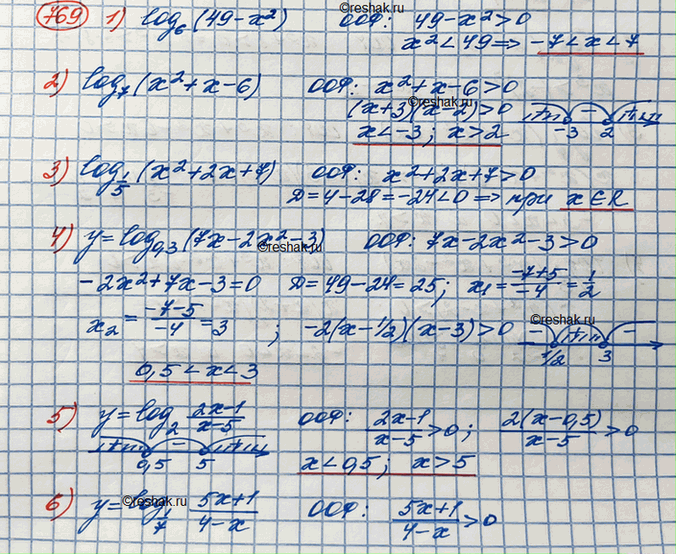 769 1) log₆(49-x²) ООФ: 49-x²>0
x²<49 => -7<x<7
2) log₇(x²+x-6) ООФ: x²+x-6>0
©reshak.ru
(x+3)(x-2)>0
-3 2
x<-3; x>2
3) log_{1/5}(x²+2x+7) ООФ: x²+2x+7>0
Д=4-28=-24<0 => при x∈R
4) y=log_{0,3}(7x-2x²-3) ООФ: 7x-2x²-3>0
©reshak.ru
-2x²+7x-3=0 Д=49-24=25; x₁=\frac{-7+5}{-4}=\frac{1}{2}
x₂=\frac{-7-5}{-4}=3; -2(x-1/2)(x-3)>0
©reshak.ru
1/2 3
0,5<x<3
5) y=log₂ \frac{2x-1}{x-5} ООФ: \frac{2x-1}{x-5}>0; \frac{2(x-0,5)}{x-5}>0
0,5 5
x<0,5; x>5
6) y=log_{1/7} \frac{5x+1}{4-x} ООФ: \frac{5x+1}{4-x}>0
©reshak.ru